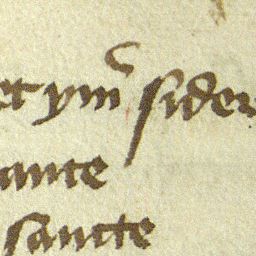 et ym̄ sider
ante
sancte